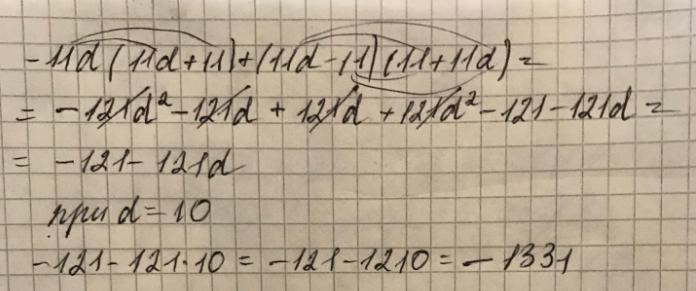 -11d(11d+11)+(11d-11)(11+11d)=
= -121d²-121d+121d+121d²-121-121d=
= -121-121d
при d=10
-121-121·10=-121-1210=-1331